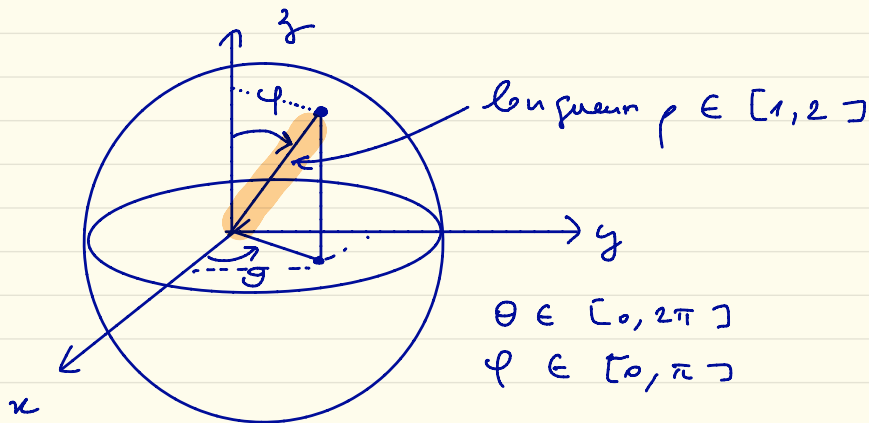 z
φ
longueur ρ ∈ [1, 2]
y
θ
θ ∈ [0, 2π]
φ ∈ [0, π]
x